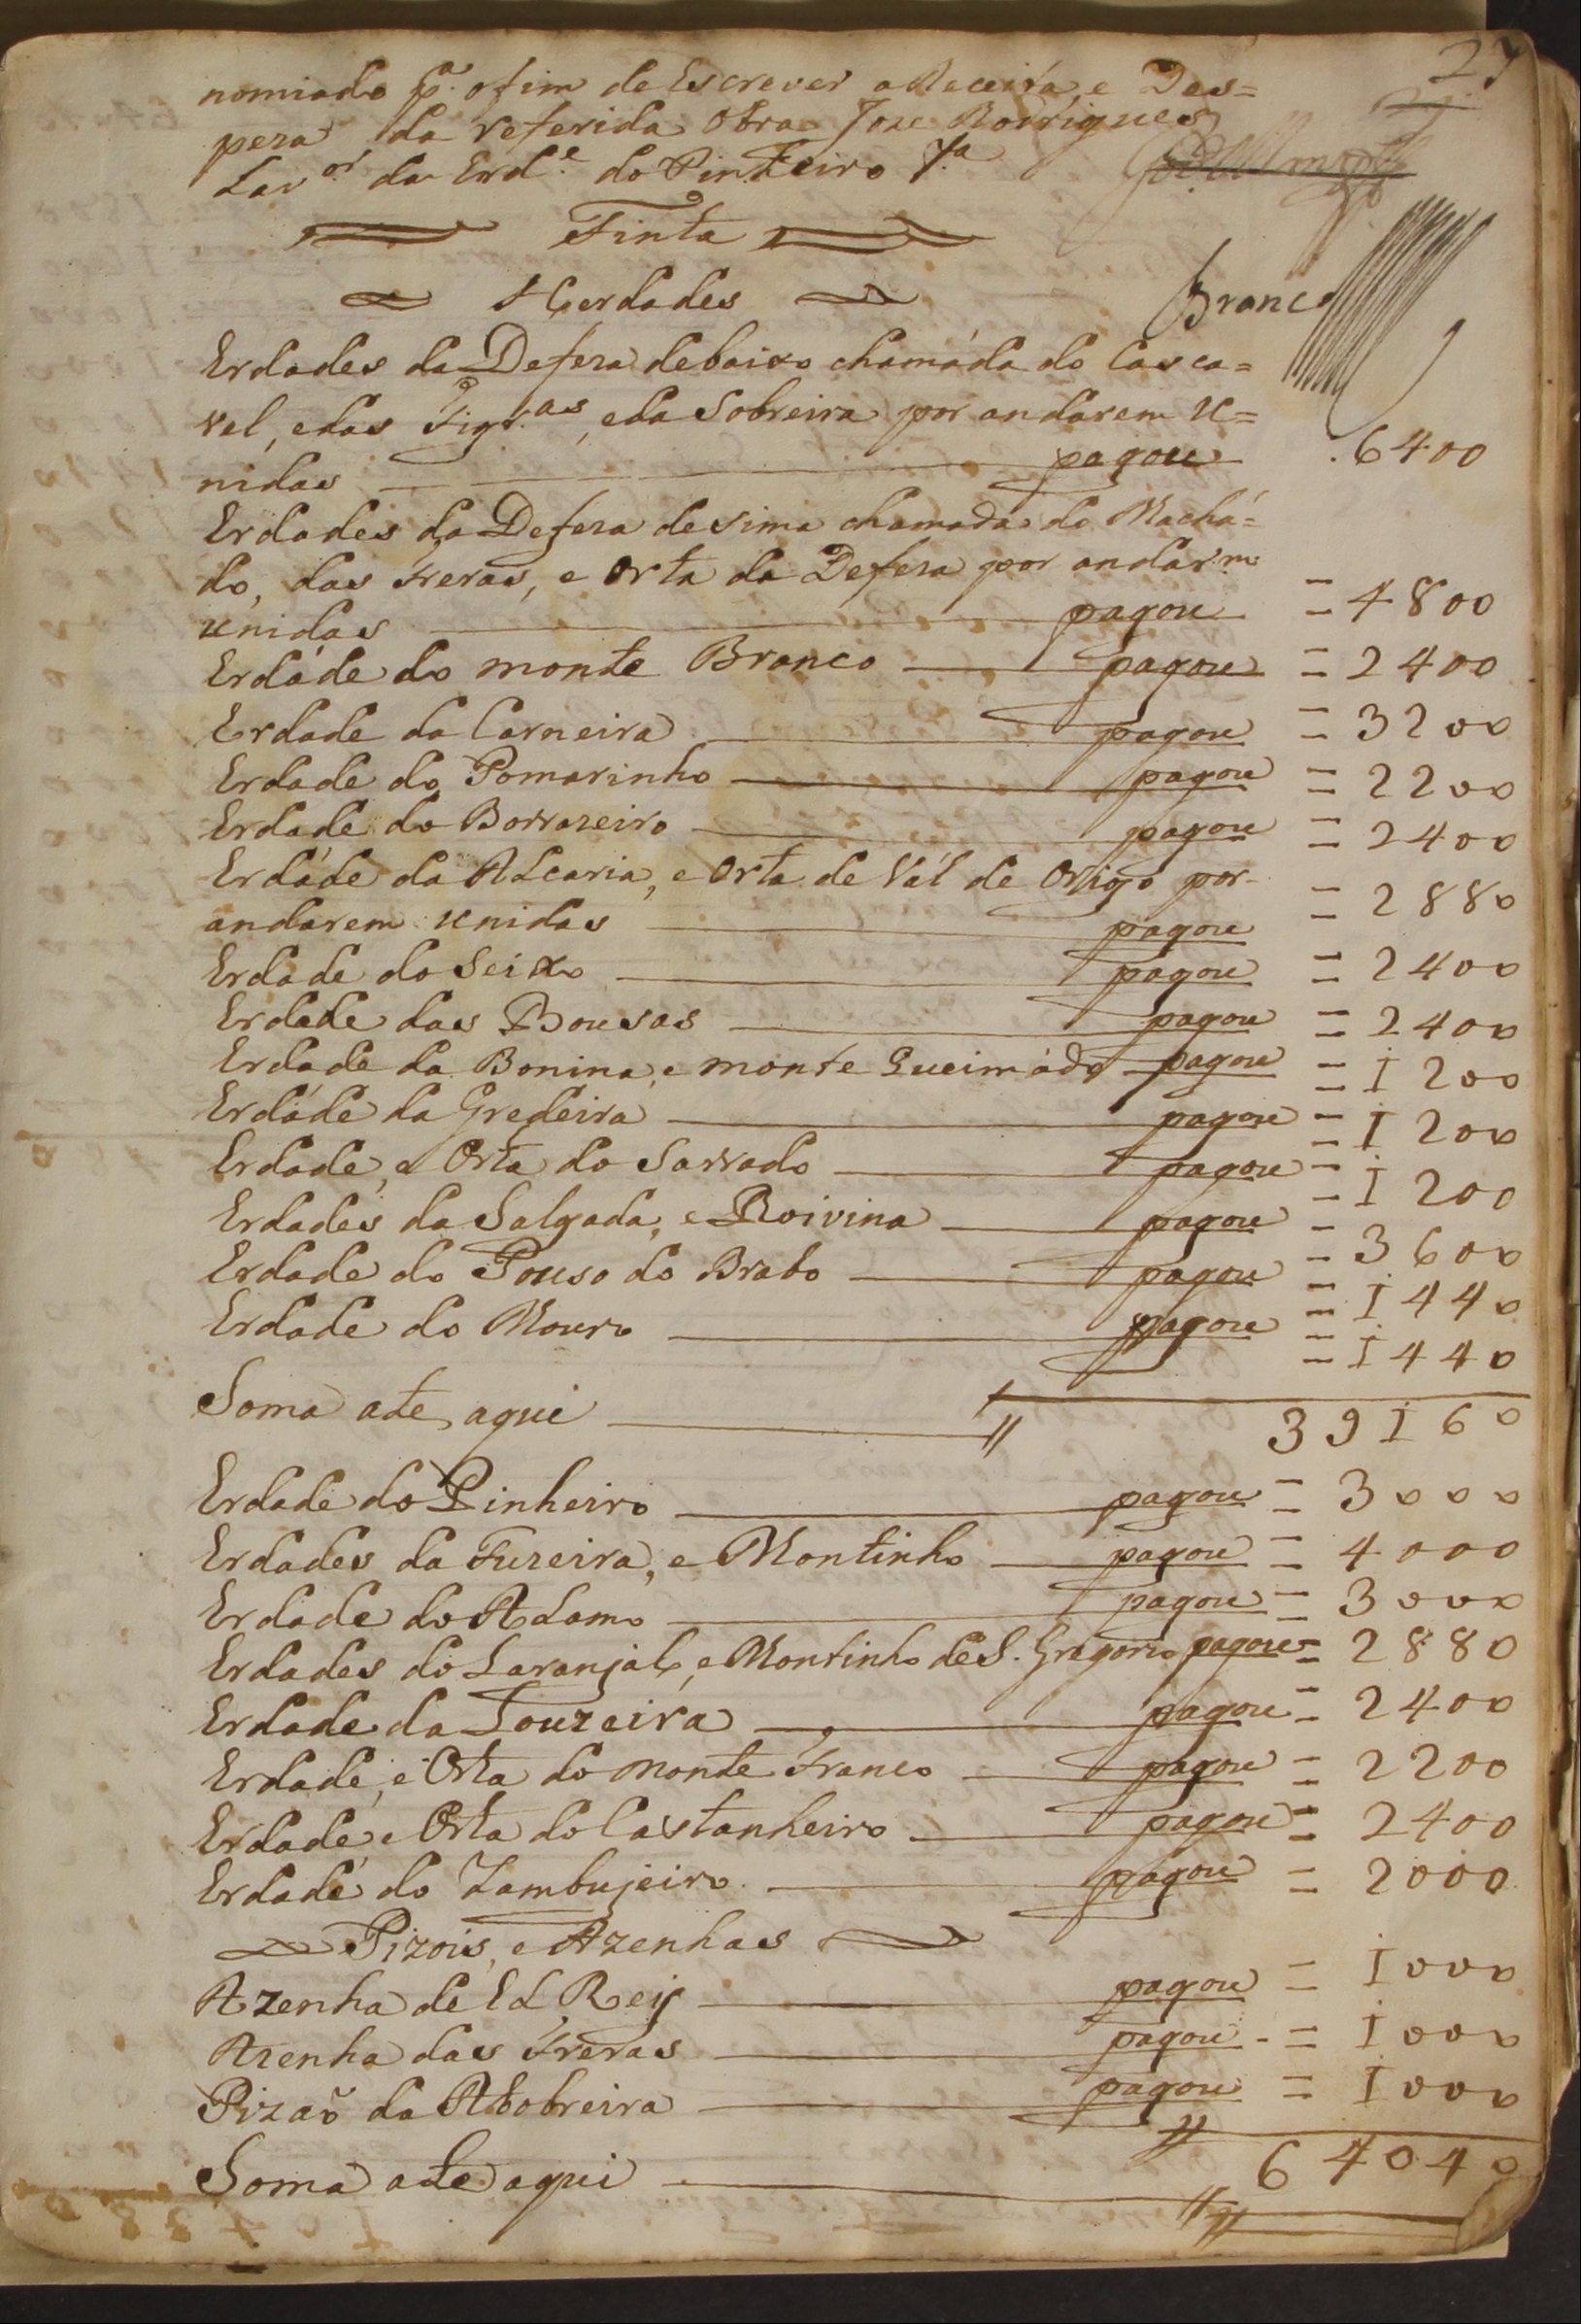 27
nomiado p.ª o fim de Escrever a Receita, e Des=
peza da referida Obra Joze Rodrigues
Lav.ºʳ da Erd.ᵉ do Pinheiro
Finta
Herdades
Branco
Erdades da Defeza debaixo chamáda do Casca=
vel, e das Figr.ᵃˢ, e da Sobreira por andarem U=
nidas pagou 6400
Erdades da Defeza de sima chamada do Machá=
do, das freras, e Orta da Defeza por andarm
unidas pagou = 4800
Erdáde do monte Branco pagou = 2400
Erdade da Carneira pagou = 3200
Erdade do Pomarinho pagou = 2200
Erdade do Borrazeiro pagou = 2400
Erdáde da ALcaria, e Orta de Vál de Origo por-
andarem unidas pagou = 2880
Erdade do Seixo pagou = 2400
Erdade das Bousas pagou = 2400
Erdade da Bonina, e monte Queimádo pagou = 1200
Erdáde da Gredeira pagou = 1200
Erdade, e Orta do Sarrado pagou = 1200
Erdades da Salgada, e Roivina pagou = 3600
Erdade do Pouso do Brabo pagou = 1440
Erdade do Mouro pagou = 1440
Soma ate aqui 39160
Erdade do Pinheiro pagou = 3000
Erdades da Fuzeira, e Montinho pagou = 4000
Erdade do ALamo pagou = 3000
Erdades do Laranjal, e Montinho de S. Gregorio pagou = 2880
Erdade da Louzeira pagou = 2400
Erdade, e Orta do monte franco pagou = 2200
Erdade, e Orta do Castanheiro pagou = 2400
Erdade do Zambujeiro pagou = 2000
Pizois, e Azenhas
Azenha de EL Reij pagou = 1000
Azenha das freras pagou = 1000
Pizaõ da Abobreira pagou = 1000
Soma ate aqui 64040